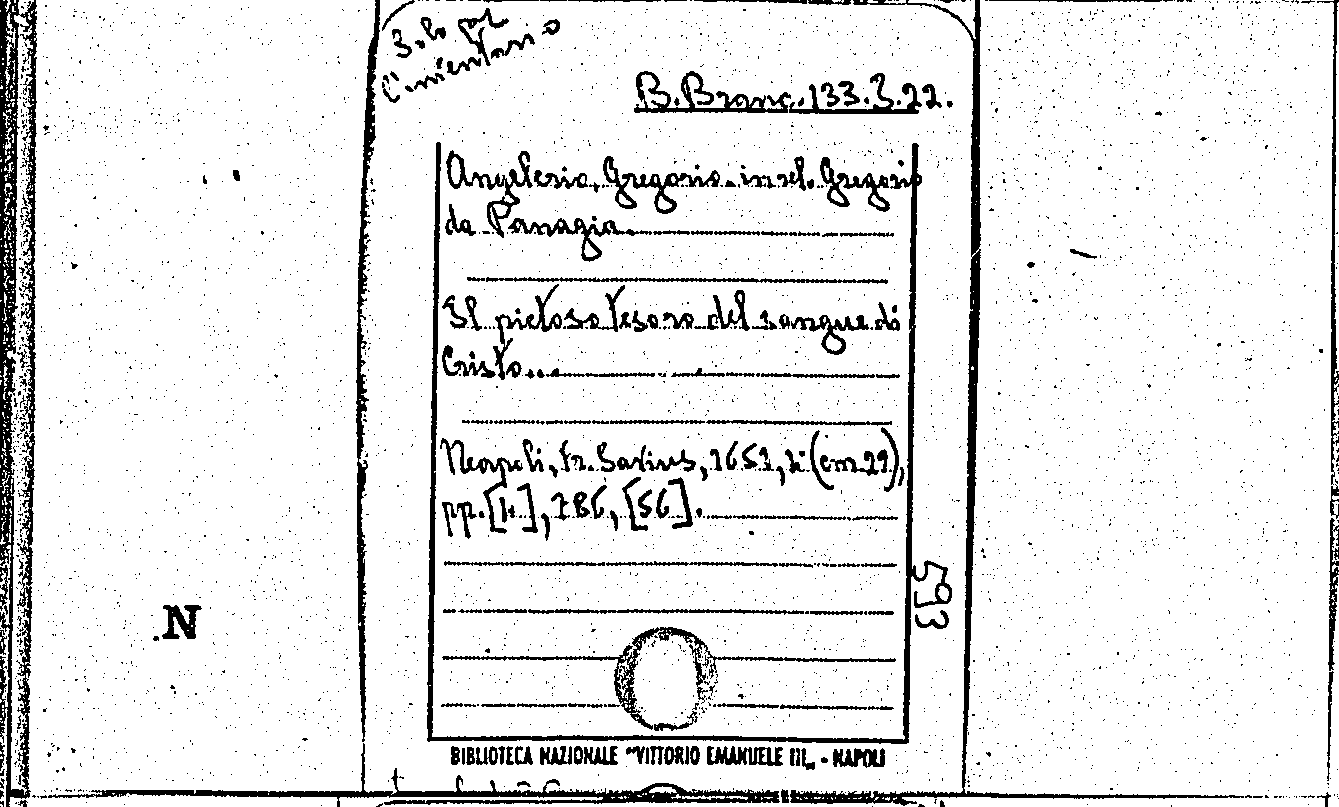 Solo per
l'inventario
B. Branc. 133.3.22.
Angelerio, Gregorio in rel. Gregorio
da Panagia.
Il pietoso tesoro del sangue di
Cristo...
Neapoli, Fr. Savius, 1651, 4° (cm 29),
pp. [4], 786, [56].
593
N
BIBLIOTECA NAZIONALE "VITTORIO EMANUELE III„ - NAPOLI